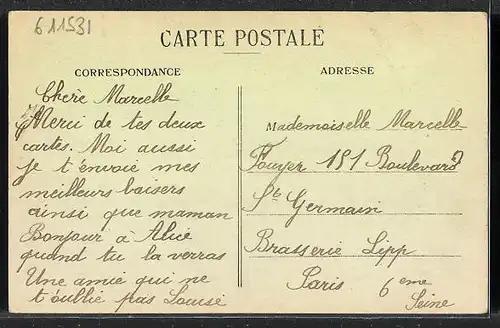 611531
CARTE POSTALE
CORRESPONDANCE
Chère Marcelle
Merci de tes deux
cartes. Moi aussi
je t'envoie mes
meilleurs baisers
ainsi que maman
Bonjour à Alice
quand tu la verras
Une amie qui ne
t'oublie pas Louise
ADRESSE
Mademoiselle Marcelle
Fouyer 151 Boulevard
St Germain
Brasserie Lipp
Paris 6eme
Seine